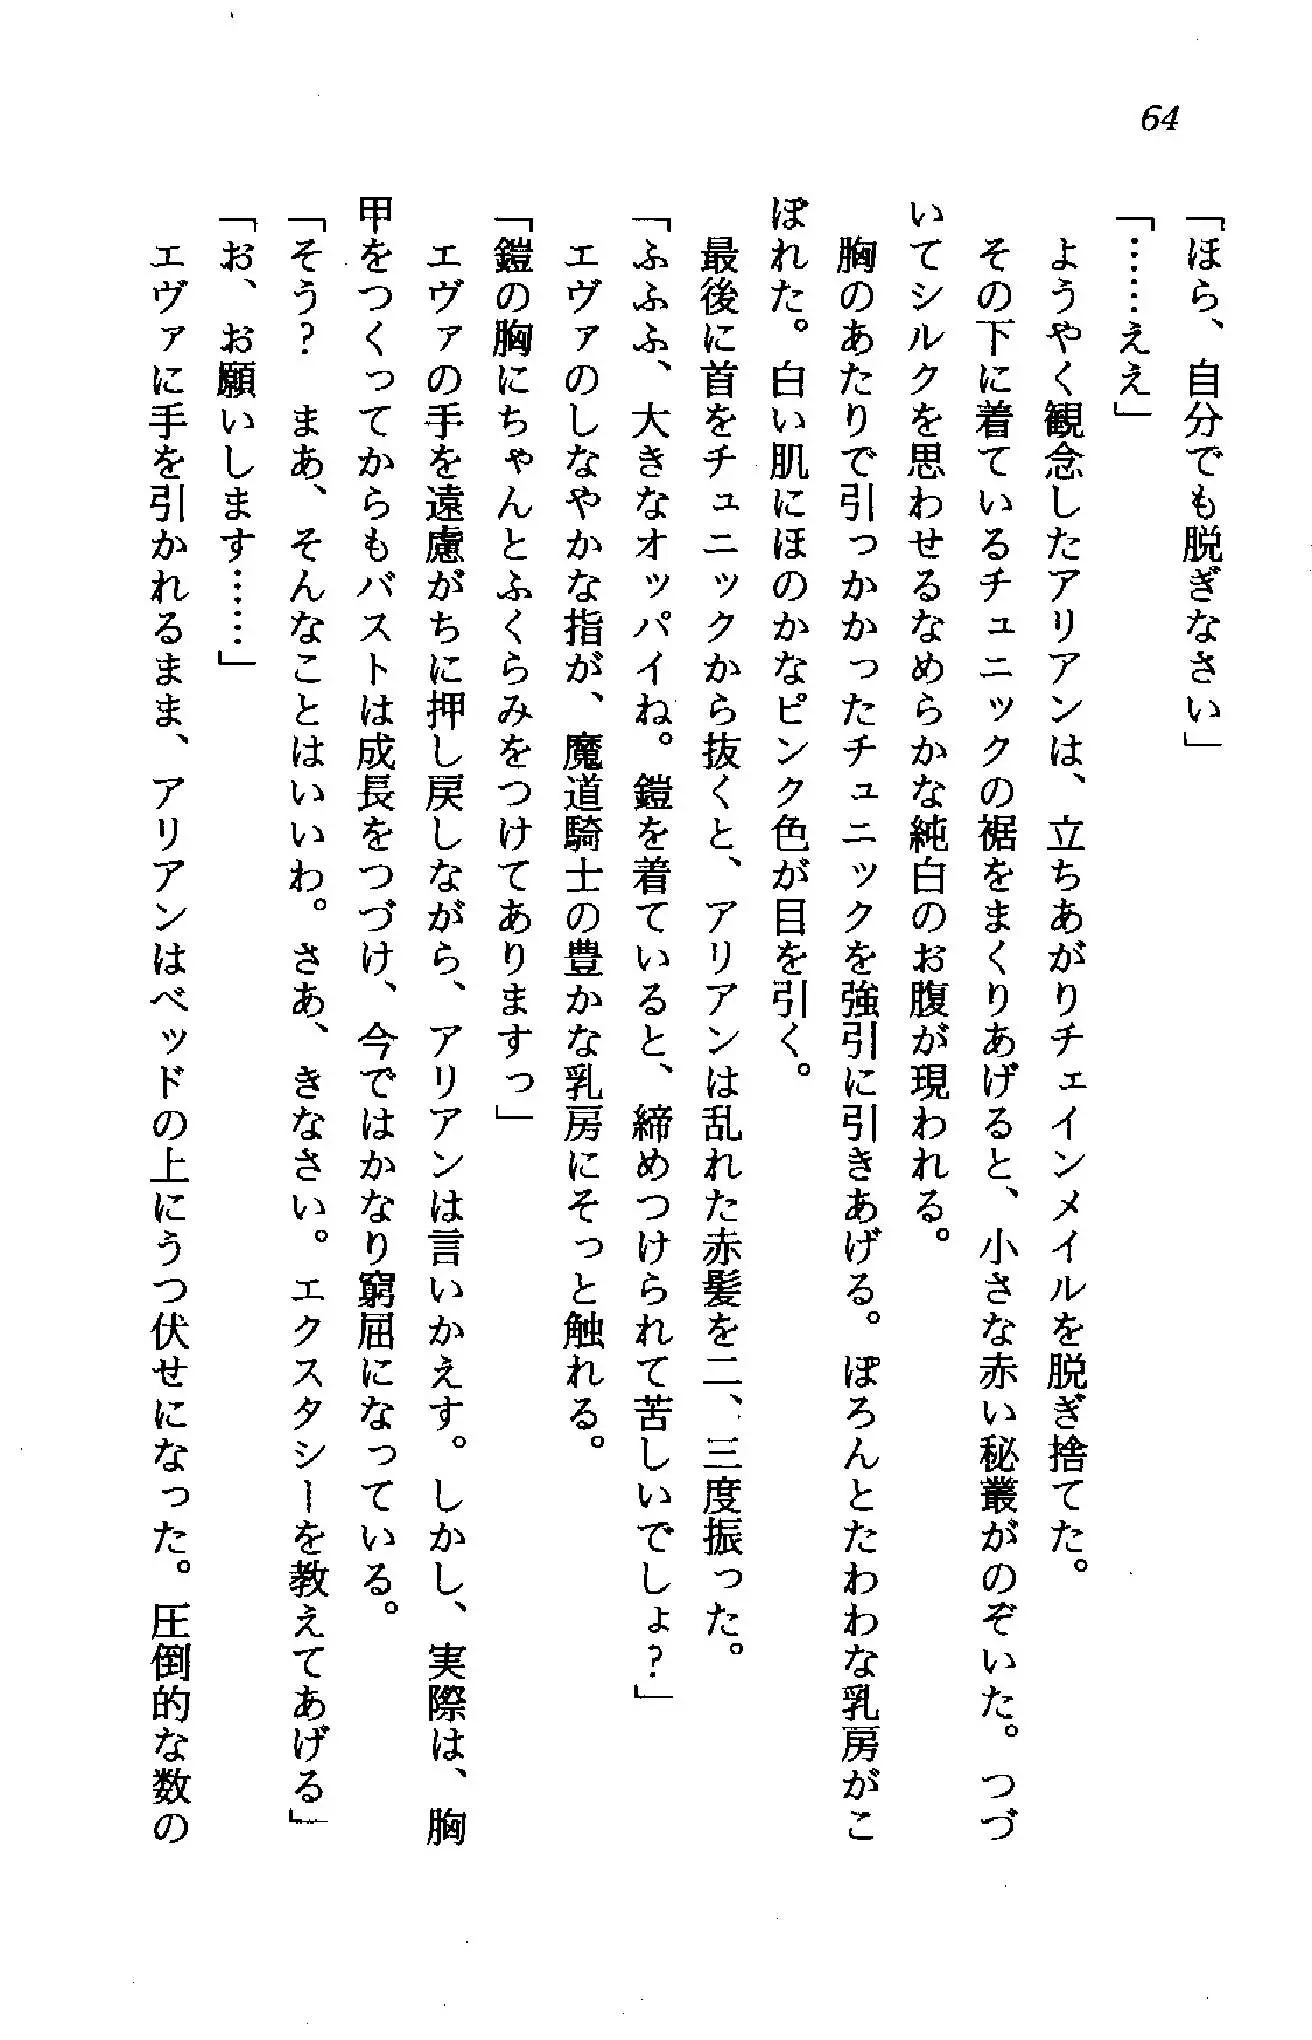 64
「ほら、自分でも脱ぎなさい」
「……ええ」
ようやく観念したアリアンは、立ちあがりチェインメイルを脱ぎ捨てた。
その下に着ているチュニックの裾をまくりあげると、小さな赤い秘叢がのぞいた。つづ
いてシルクを思わせるなめらかな純白のお腹が現われる。
胸のあたりで引っかかったチュニックを強引に引きあげる。ぽろんとたわわな乳房がこ
ぼれた。白い肌にほのかなピンク色が目を引く。
最後に首をチュニックから抜くと、アリアンは乱れた赤髪を二、三度振った。
「ふふふ、大きなオッパイね。鎧を着ていると、締めつけられて苦しいでしょ?」
エヴァのしなやかな指が、魔道騎士の豊かな乳房にそっと触れる。
「鎧の胸にちゃんとふくらみをつけてありますっ」
エヴァの手を遠慮がちに押し戻しながら、アリアンは言いかえす。しかし、実際は、胸
甲をつくってからもバストは成長をつづけ、今ではかなり窮屈になっている。
「そう? まあ、そんなことはいいわ。さあ、きなさい。エクスタシーを教えてあげる」
「お、お願いします……」
エヴァに手を引かれるまま、アリアンはベッドの上にうつ伏せになった。圧倒的な数の